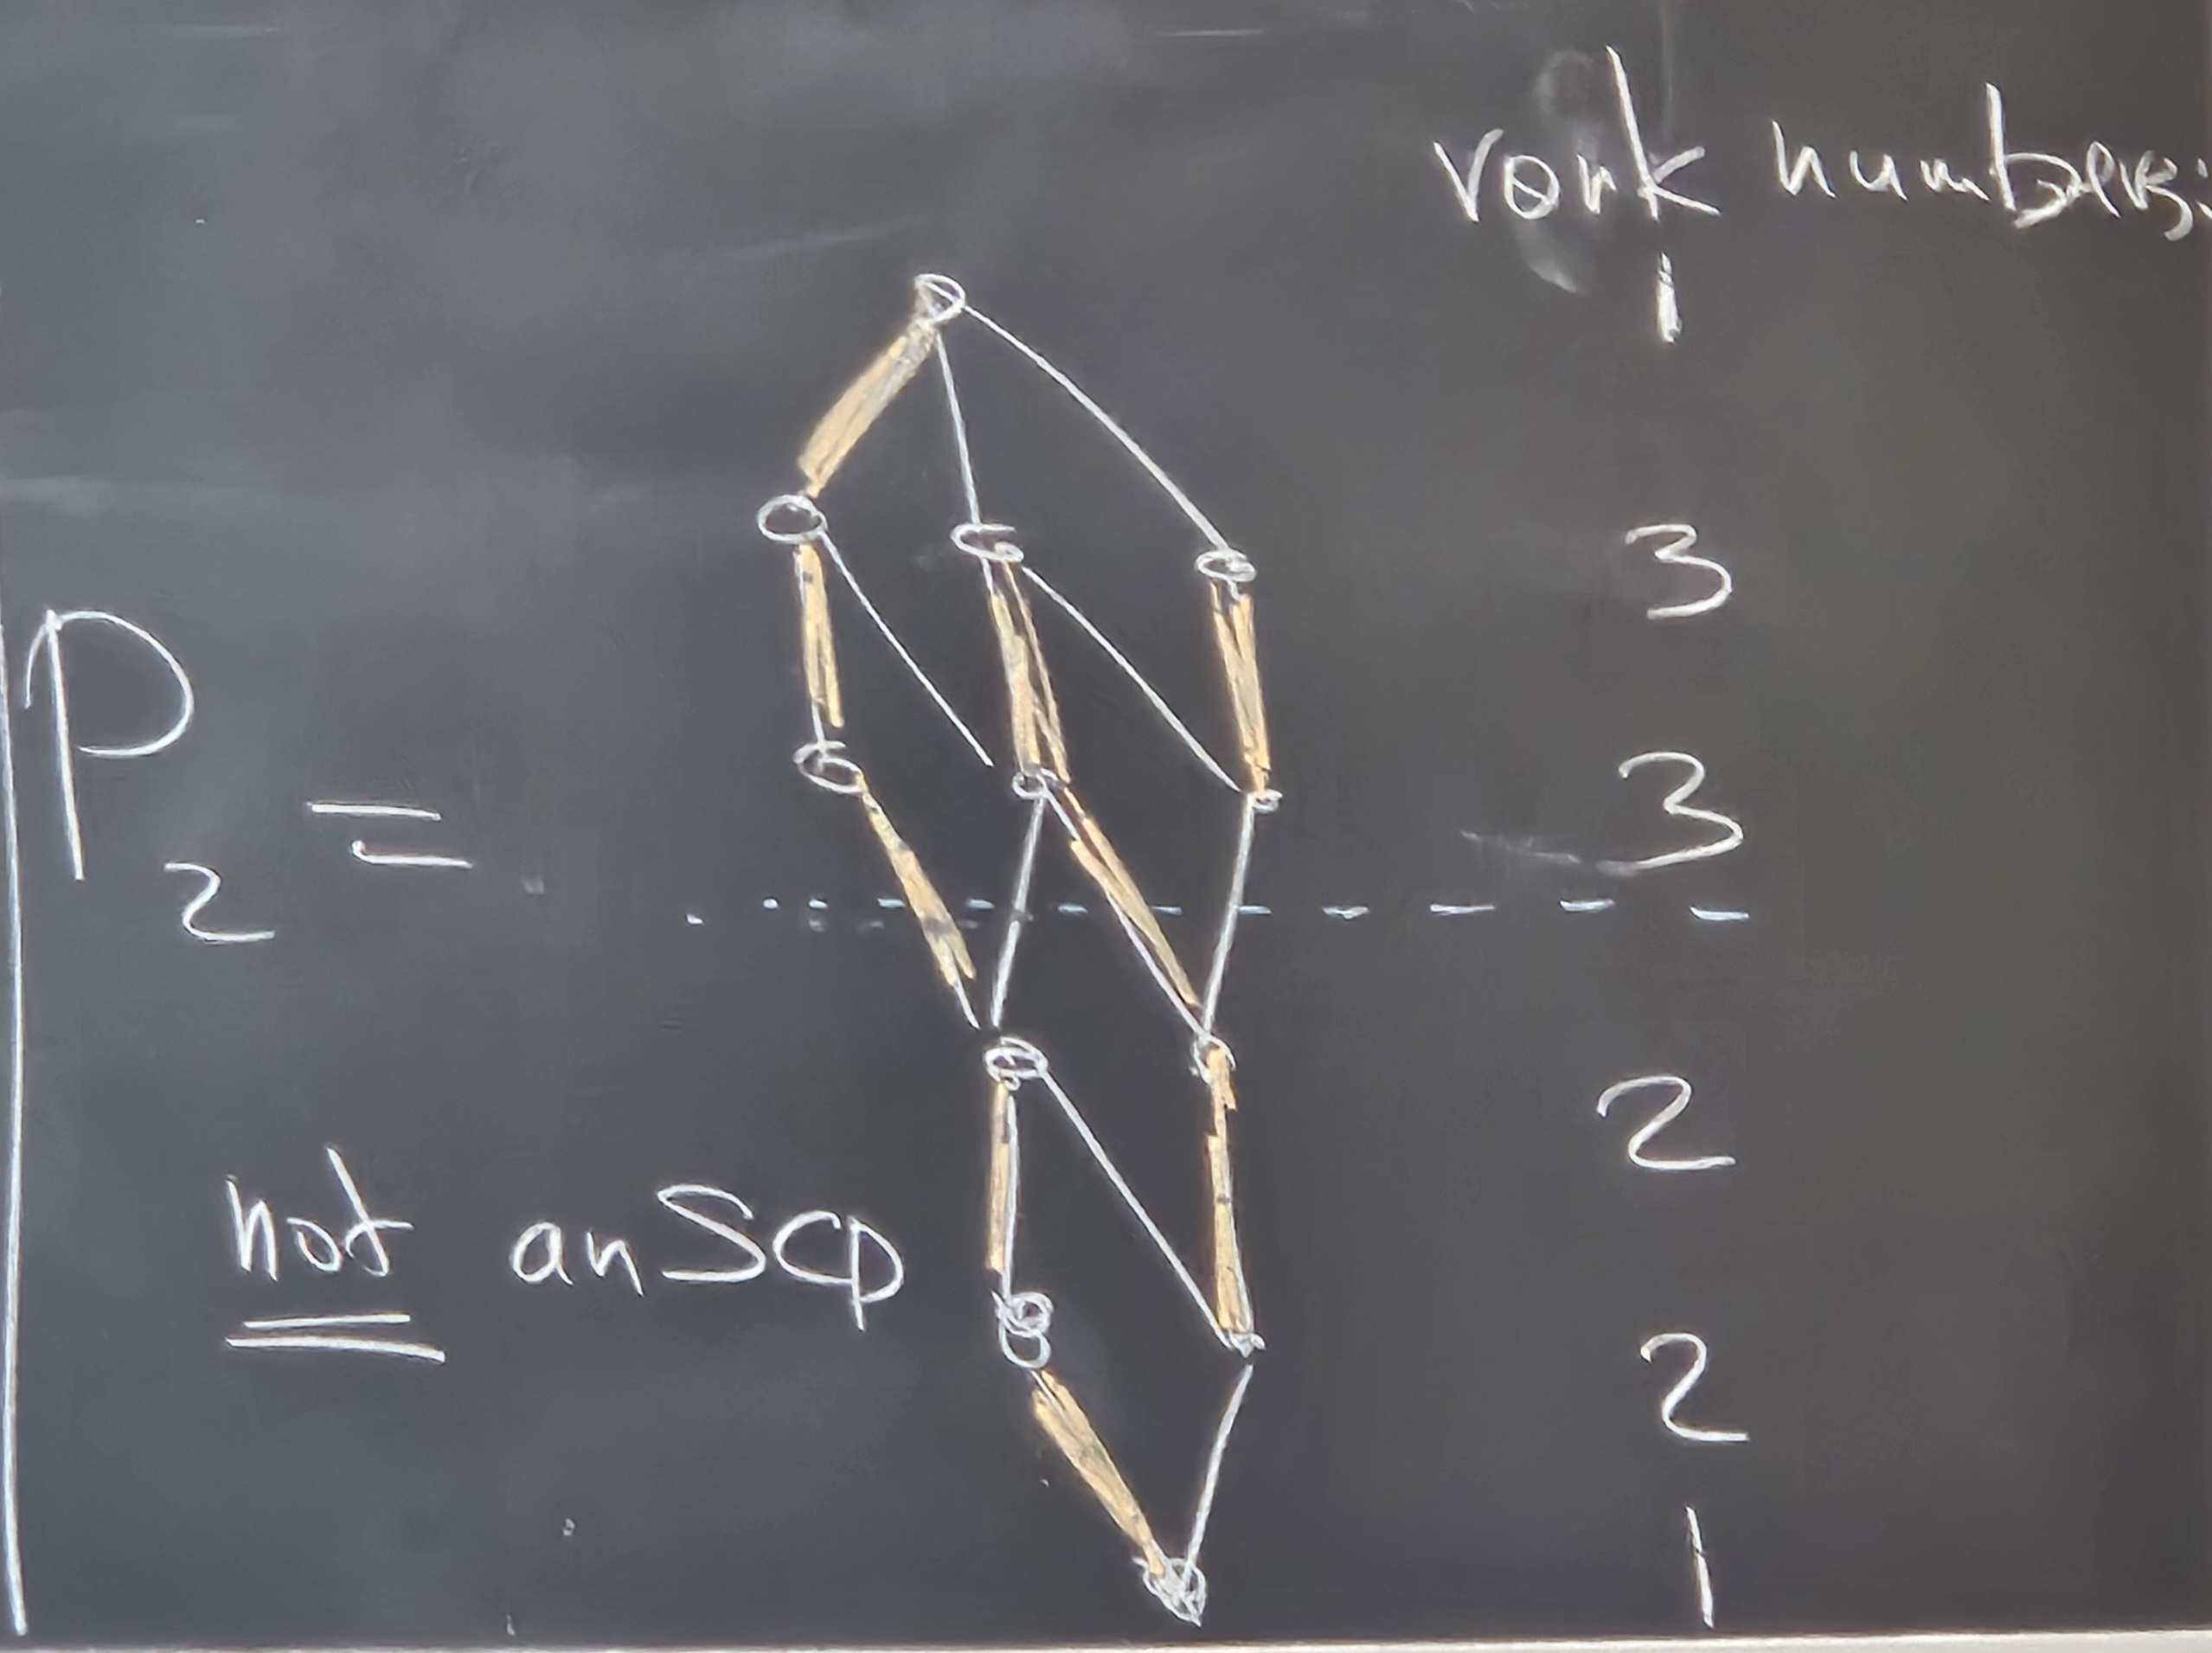 rank numbers:
1
3
3
P2 =
2
not an SCP
2
1